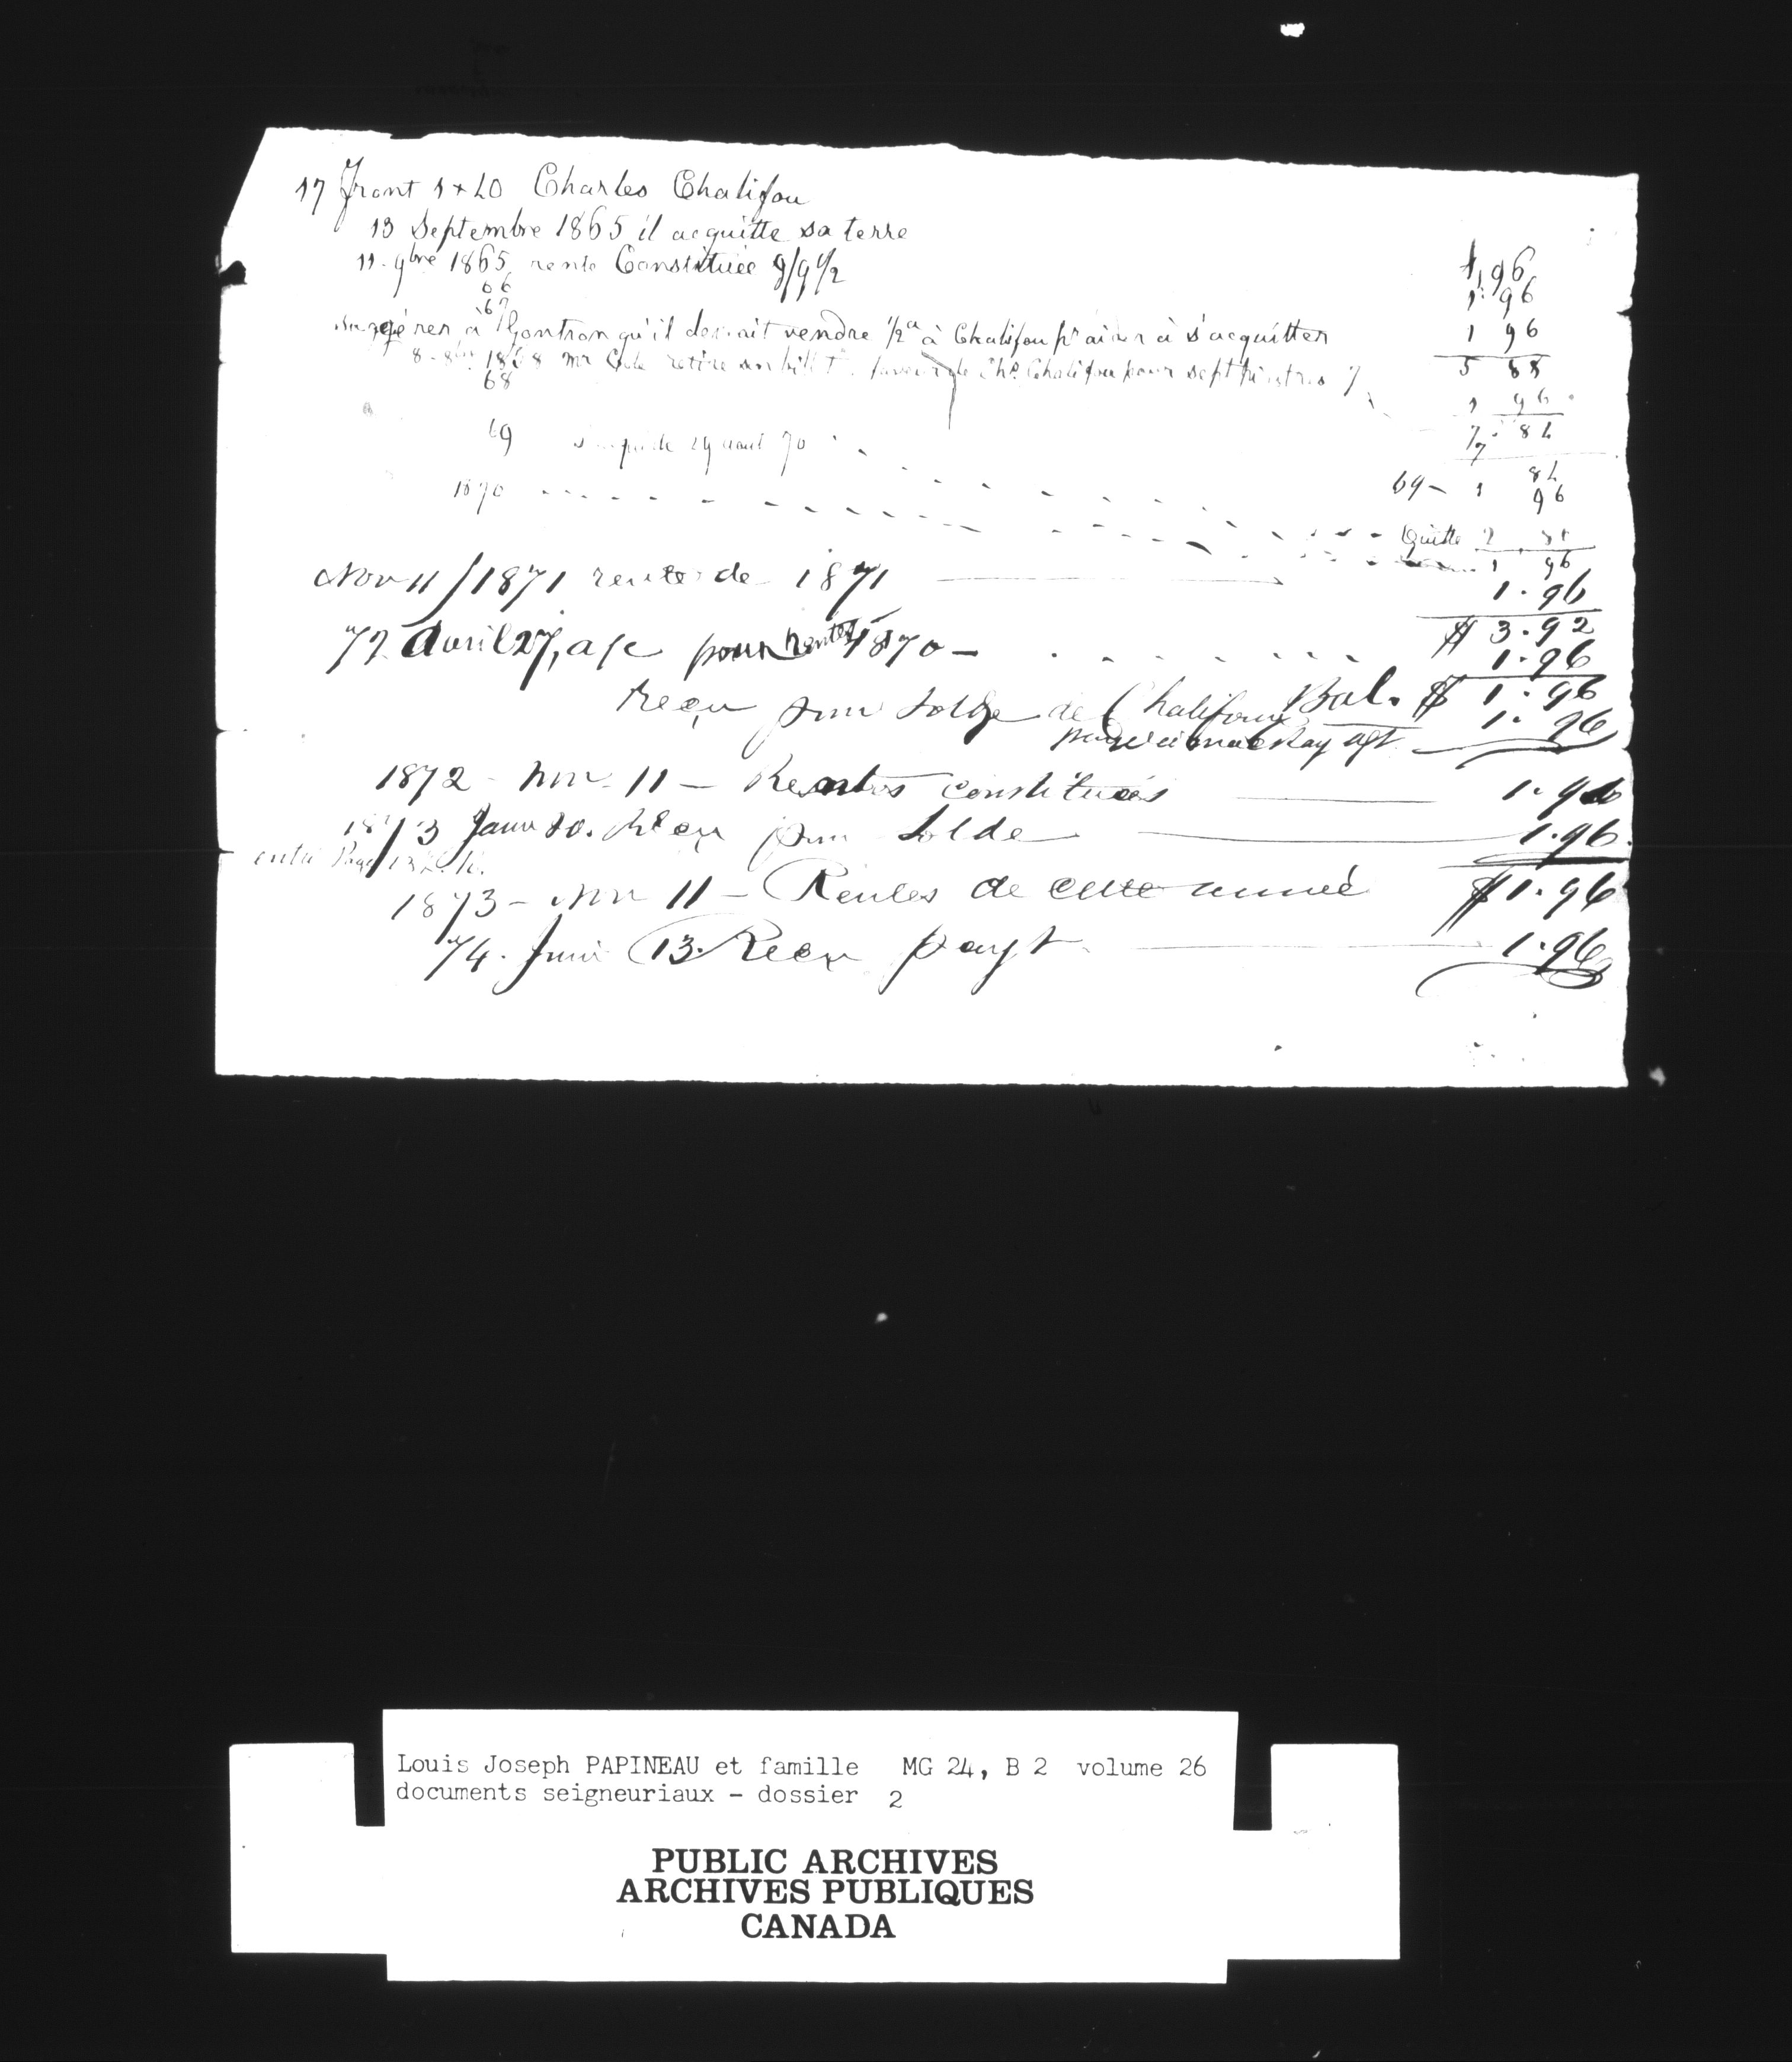 17 Front 1 x 20 Charles Chalifou
13 Septembre 1865 il acquitte sa terre
11. 9bre 1865 rente Constituée 9/9 1/2 1,96
66 1. 96
67
suggérer à Gontron qu'il devrait vendre 1/2 a à Chalifou pr aider à s'acquitter 1 96
8 - 1868 Mr retire son billet faveur de Chs Chalifou pour sept piastres 7 5 88
68 1 96
69 29 aout 70 7. 84
84
1870 69 - 1 96
Quitte 2 80
1 96
Nov 11/1871 rente de 1871 1.96
$ 3.92
72 Avril 27, a/c pour rentes 1870 - 1.96
Bal. $ 1.96
Reçu pour solde de Chalifoux 1.96
Mackay agt
1872 - Nov. 11 - Rentes constituées 1.96
1873 Janv 20. Reçu pour solde 1.96.
entré Page
1873 - Nov 11 - Rentes de cette année $1.96
74. Juin 13. Recu payt 1.96
Louis Joseph PAPINEAU et famille MG 24, B 2 volume 26
documents seigneuriaux - dossier 2
PUBLIC ARCHIVES
ARCHIVES PUBLIQUES
CANADA